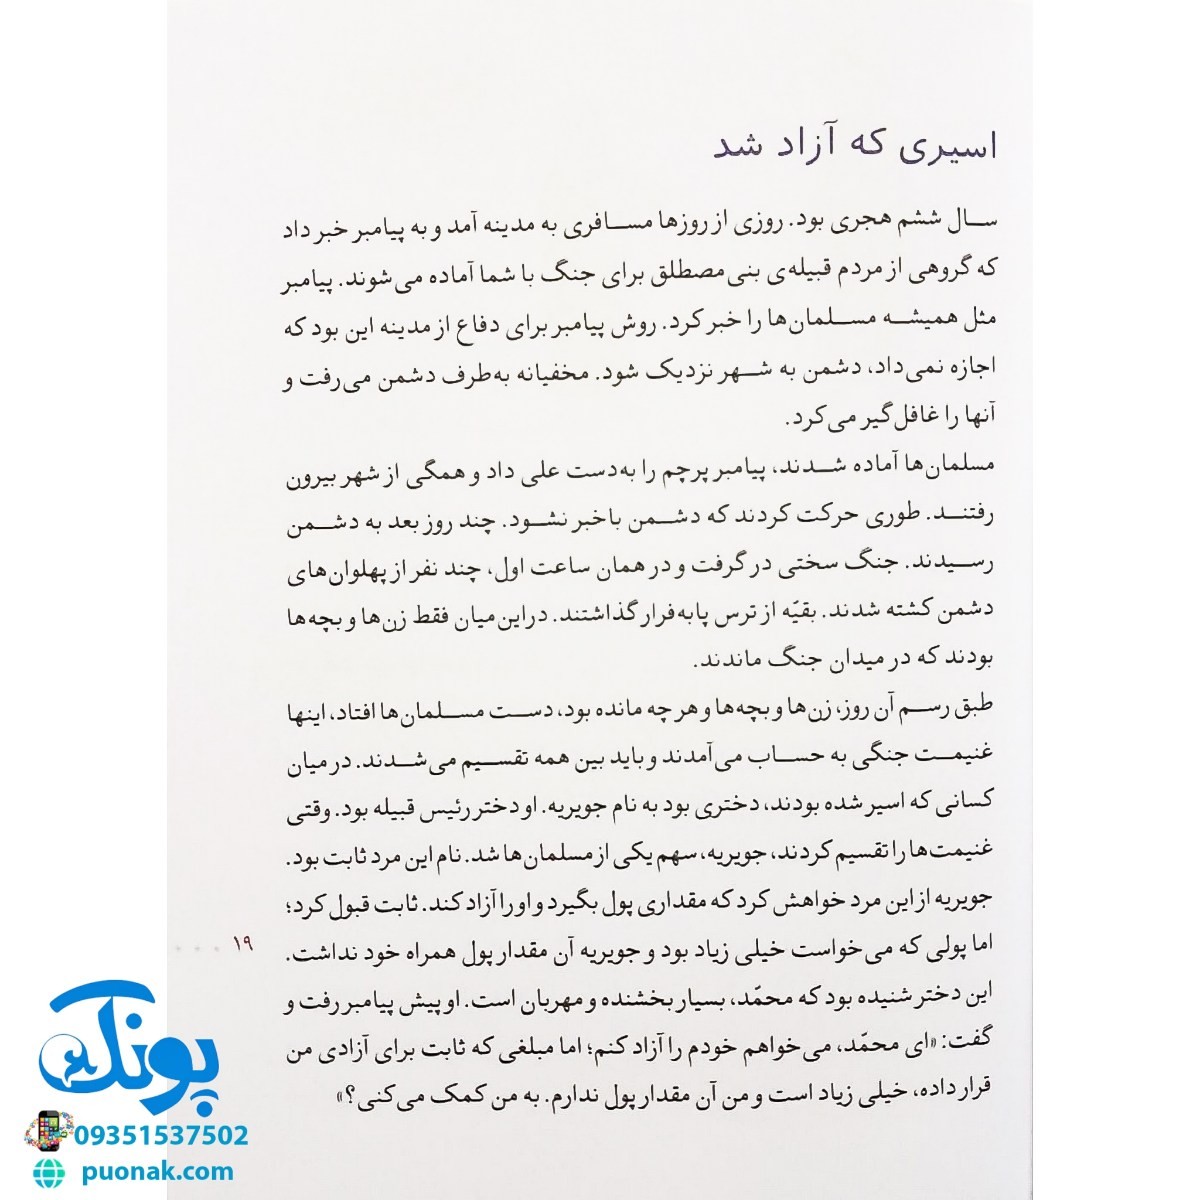 اسیری که آزاد شد
ســال ششم هجری بود. روزی از روزها مســافری به مدینه آمد و به پیامبر خبر داد
که گروهی از مردم قبیله‌ی بنی‌مصطلق برای جنگ با شما آماده می‌شوند. پیامبر
مثل همیشــه مســلمان‌ها را خبر کرد. روش پیامبر برای دفاع از مدینه این بود که
اجازه نمی‌داد، دشمن به شــهر نزدیک شود. مخفیانه به‌طرف دشمن می‌رفت و
آنها را غافل‌گیر می‌کرد.
مسلمان‌ها آماده شــدند، پیامبر پرچم را به‌دست علی داد و همگی از شهر بیرون
رفتنــد. طوری حرکت کردند که دشــمن باخبر نشــود. چند روز بعد به دشــمن
رســیدند. جنگ سختی در گرفت و در همان ساعت اول، چند نفر از پهلوان‌های
دشمن کشته شدند. بقیّه از ترس پابه‌فرار گذاشتند. دراین‌میان فقط زن‌ها و بچه‌ها
بودند که در میدان جنگ ماندند.
طبق رســم آن روز، زن‌ها و بچه‌ها و هر چه مانده بود، دســت مســلمان‌ها افتاد، اینها
غنیمــت جنگی به حســاب می‌آمدند و باید بین همه تقسیم می‌شــدند. در میان
کسانی که اسیر شده بودند، دختری بود به نام جویریه. او دختر رئیس قبیله بود. وقتی
غنیمت‌ها را تقسیم کردند، جویریه، سهم یکی از مسلمان‌ها شد. نام این مرد ثابت بود.
جویریه از این مرد خواهش کرد که مقداری پول بگیرد و او را آزاد کند. ثابت قبول کرد؛
اما پولی که می‌خواست خیلی زیاد بود و جویریه آن مقدار پول همراه خود نداشت.
این دختر شنیده بود که محمّد، بسیار بخشنده و مهربان است. او پیش پیامبر رفت و
گفت: «ای محمّد، می‌خواهم خودم را آزاد کنم؛ اما مبلغی که ثابت برای آزادی من
قرار داده، خیلی زیاد است و من آن مقدار پول ندارم. به من کمک می‌کنی؟»
۱۹
پونک
09351537502
puonak.com